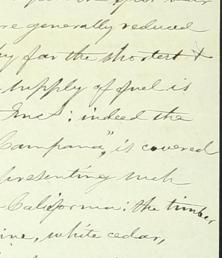 are generally reduced
by far the shortest &
supply of fuel is
indeed the
Campana", is covered
presenting such
California: the timber
pine, white cedar,